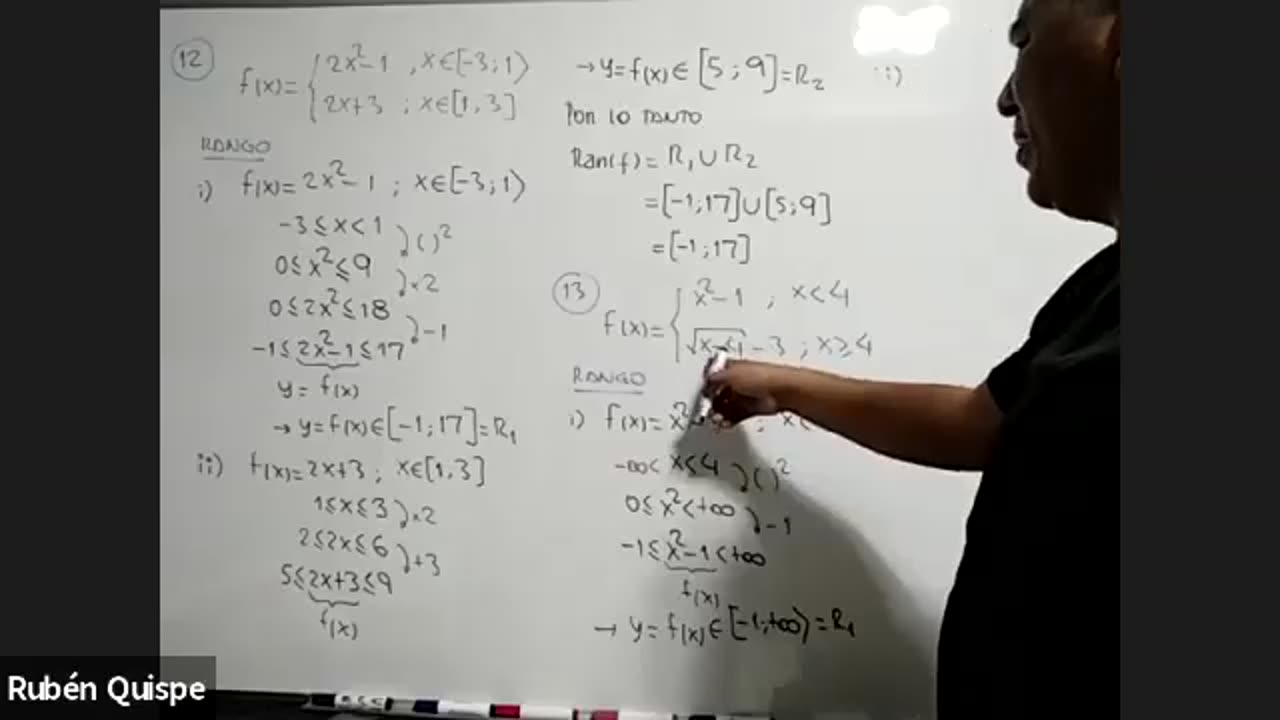 12
f(x)= { 2x²-1 , x∈[-3;1⟩
2x+3 ; x∈[1,3]
RANGO
i) f(x)= 2x²-1 ; x∈[-3;1⟩
-3≤x<1 )( )²
0≤x²≤9 )×2
0≤2x²≤18 )-1
-1≤2x²-1≤17
y = f(x)
→ y=f(x)∈[-1;17]=R₁
ii) f(x)=2x+3 ; x∈[1,3]
1≤x≤3 )×2
2≤2x≤6 )+3
5≤2x+3≤9
f(x)
→ y=f(x)∈[5;9]=R₂ ii)
POR LO TANTO
Ran(f)= R₁∪R₂
=[-1;17]∪[5;9]
=[-1;17]
13
f(x)= { x²-1 ; x<4
√x-4 -3 ; x≥4
RANGO
i) f(x)= x² ; x<
-∞< x≤4 )( )²
0≤x²<+∞ )-1
-1≤x²-1<+∞
f(x)
→ y=f(x)∈[-1;+∞⟩=R₁
Rubén Quispe